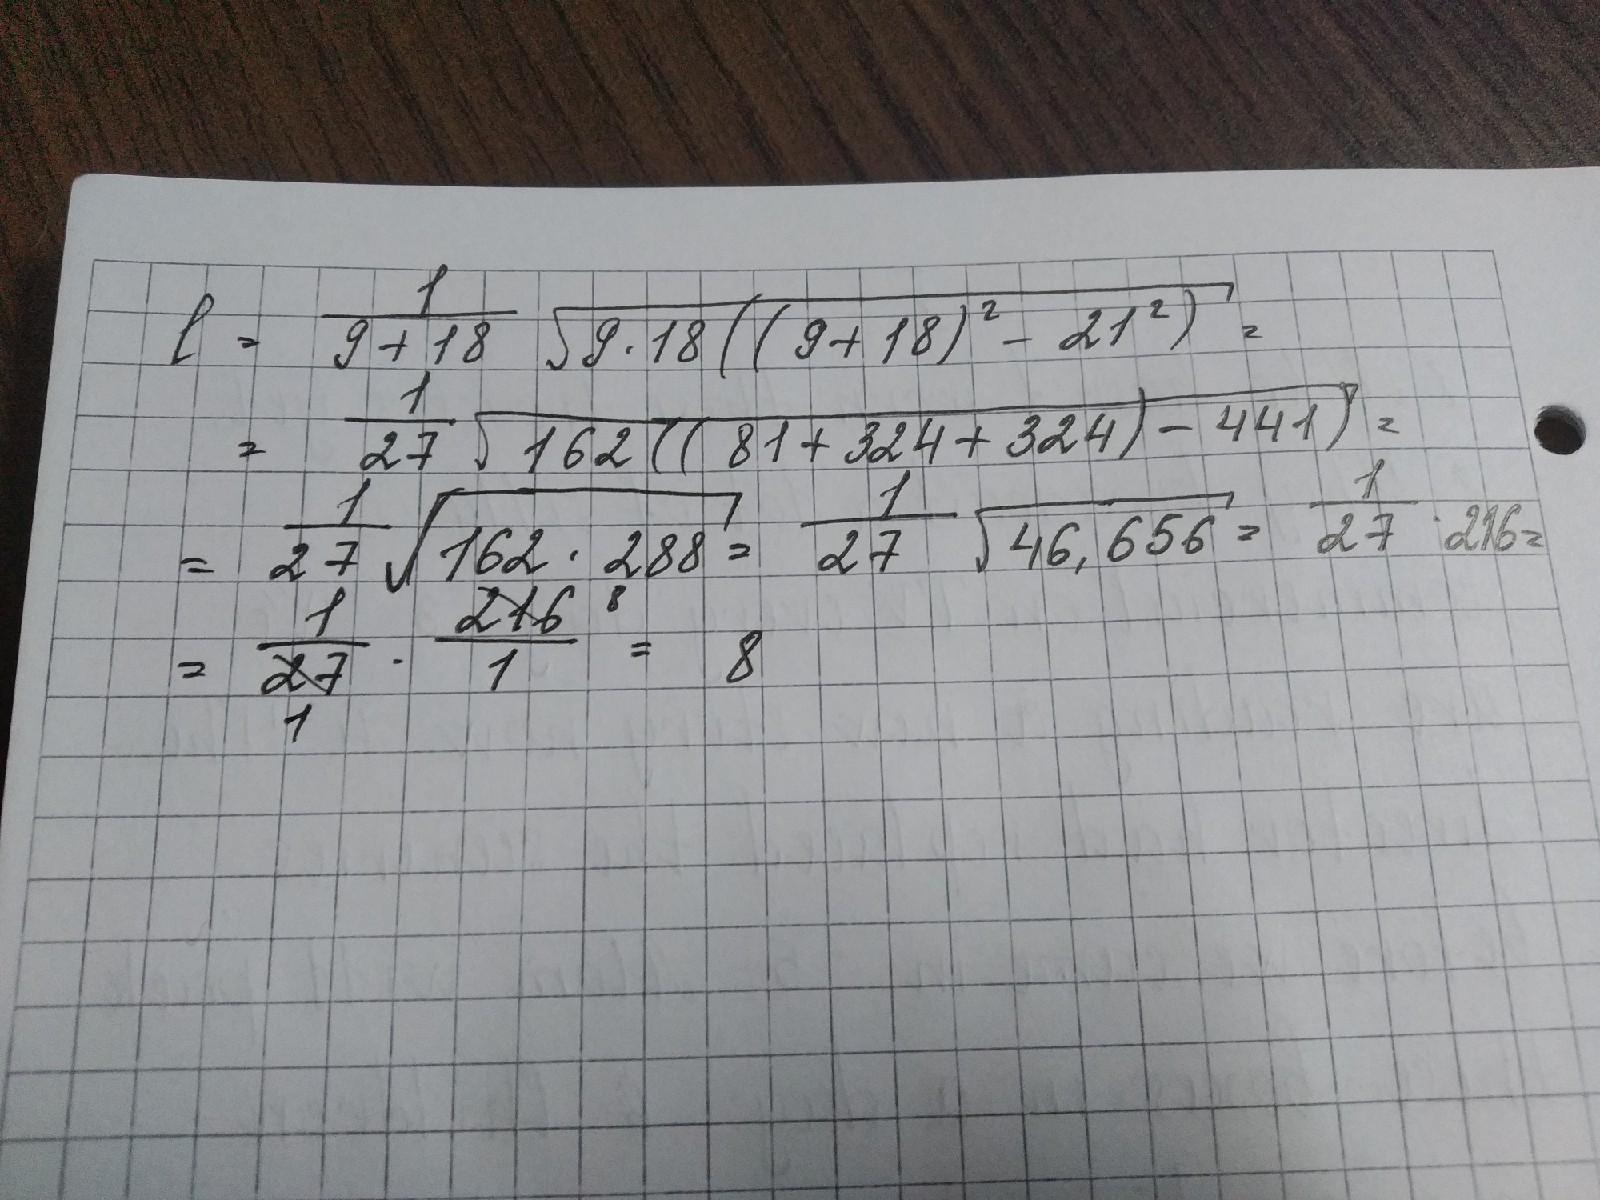 l = 1/(9+18) √(9·18((9+18)² - 21²)) =
= 1/27 √(162((81+324+324) - 441)) =
= 1/27 √(162·288) = 1/27 √(46,656) = 1/27 · 216 =
= 1/27 · 216/1 = 8
8
1